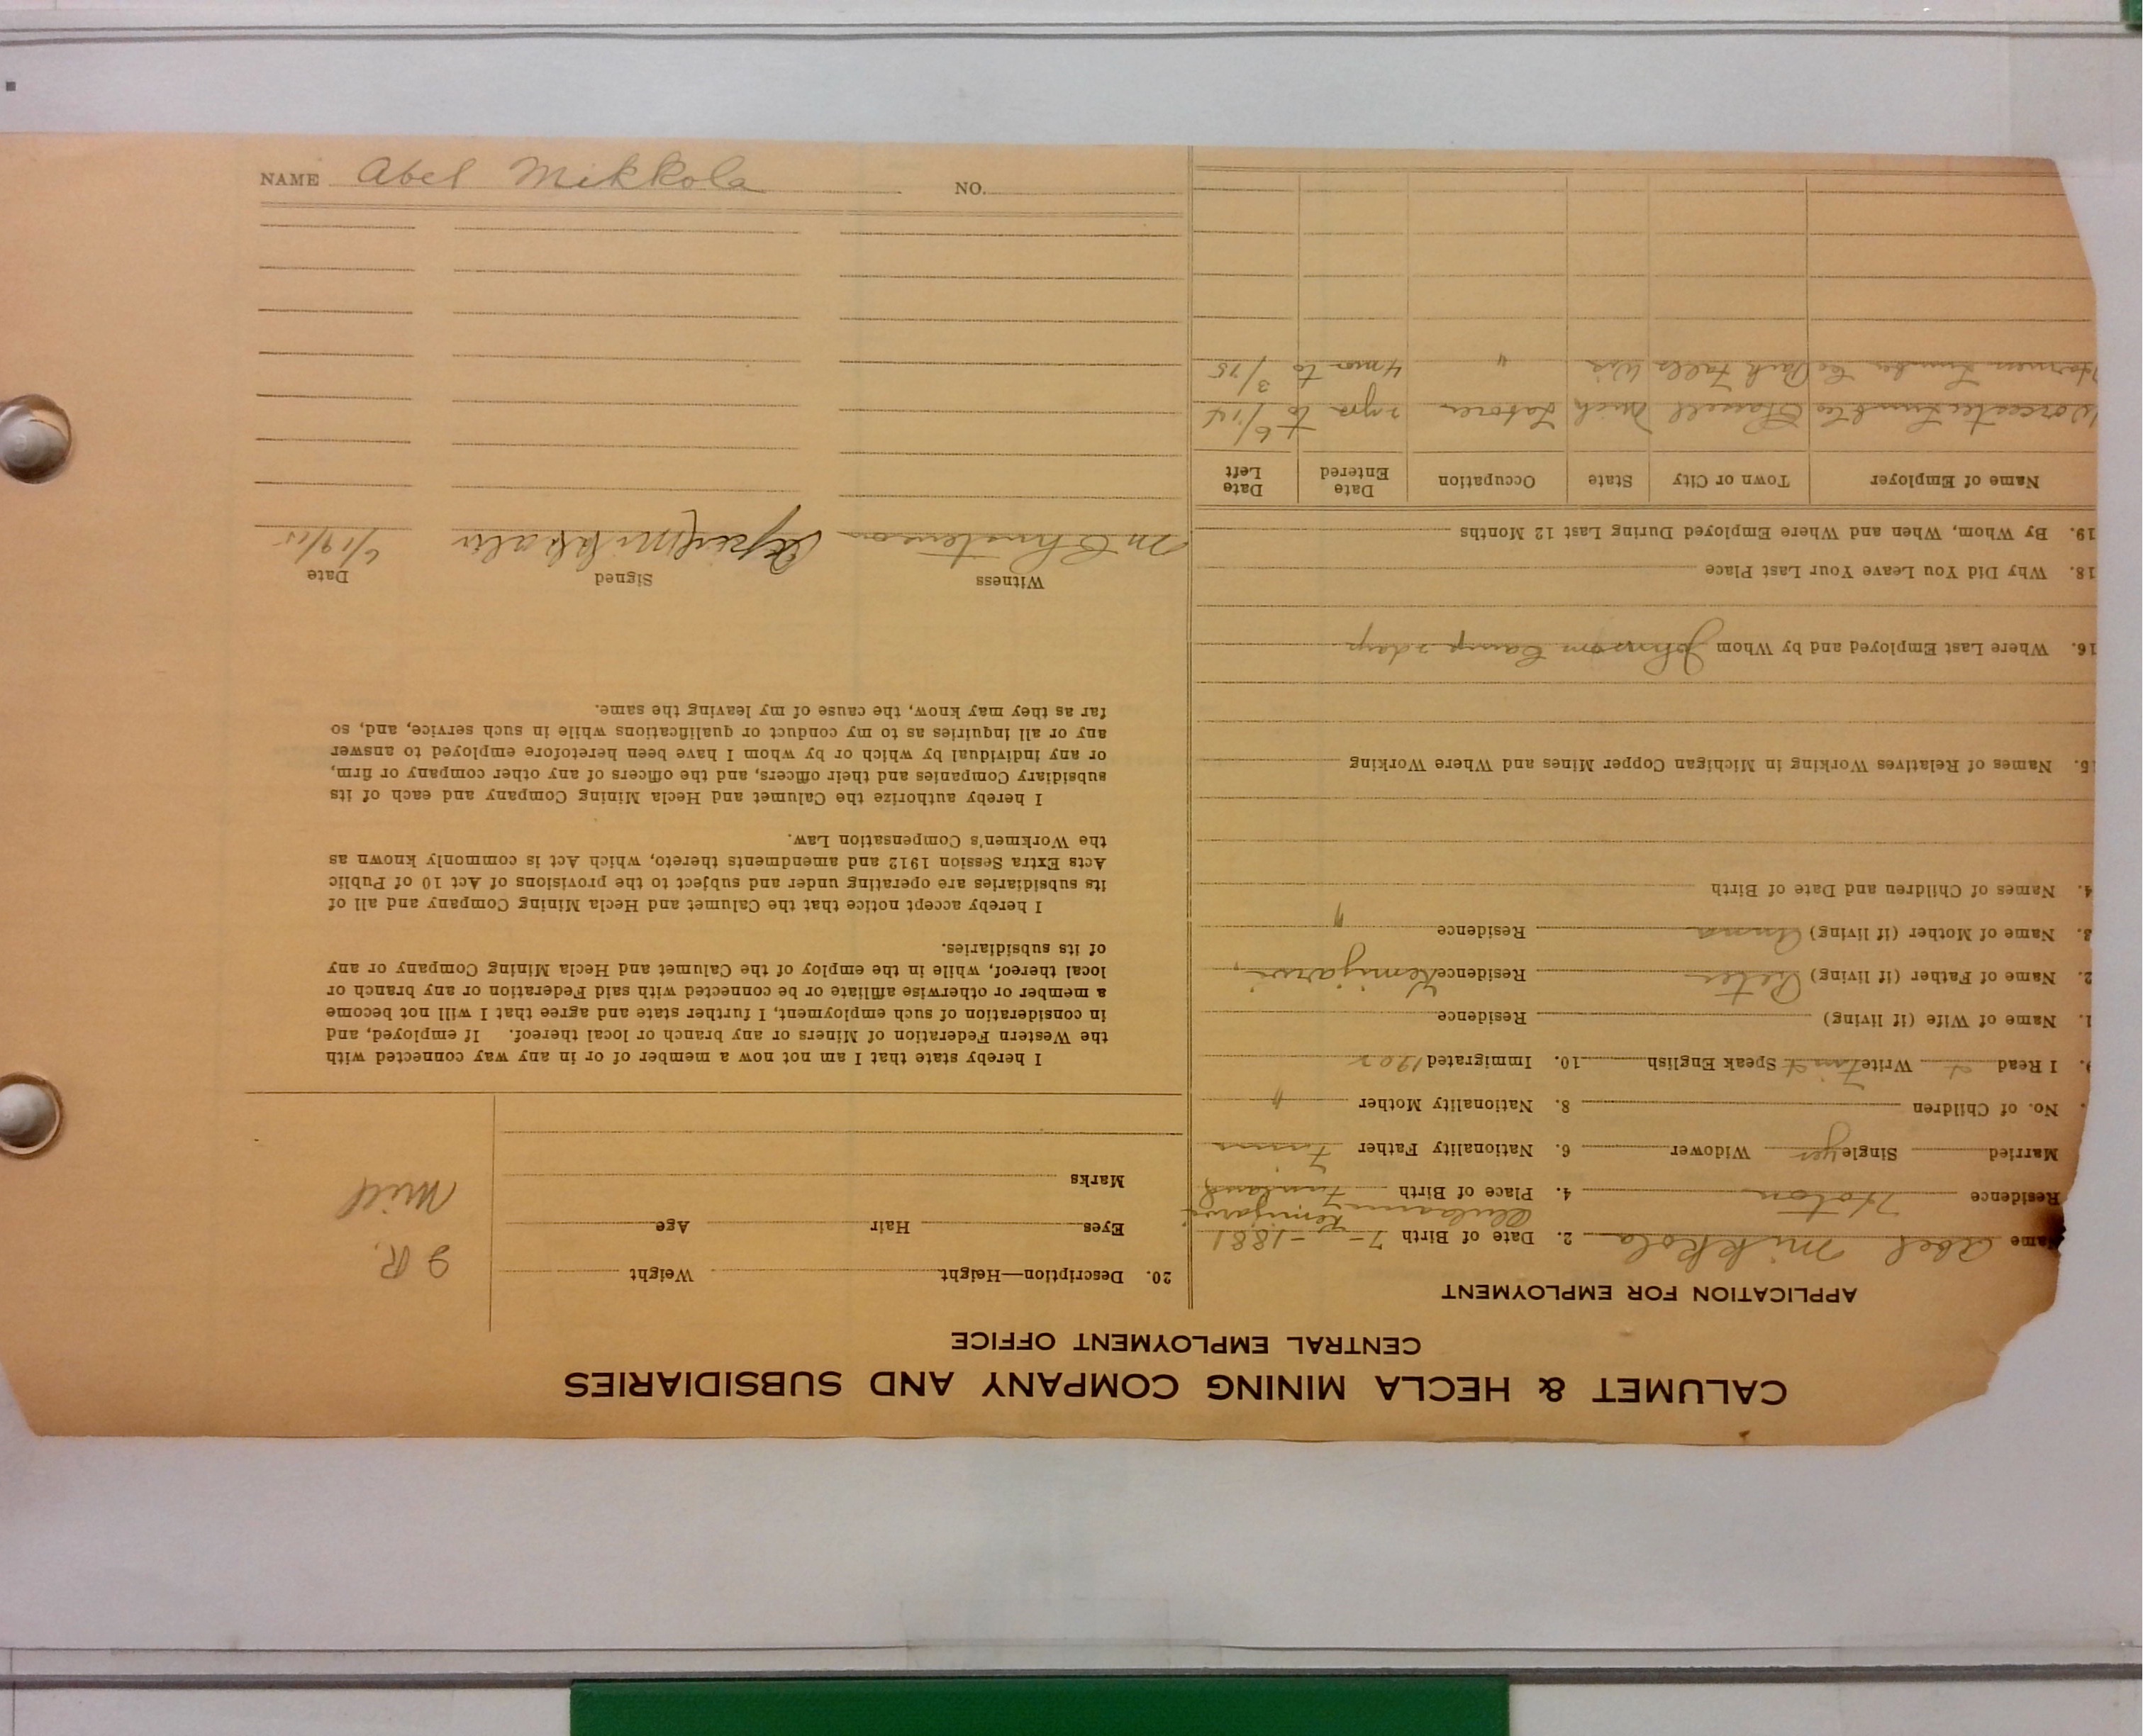 CALUMET & HECLA MINING COMPANY AND SUBSIDIARIES
CENTRAL EMPLOYMENT OFFICE
APPLICATION FOR EMPLOYMENT
Name Abel Mikkola 2. Date of Birth 7- -1881
Kemijarvi
Residence Hoton 4. Place of Birth Finland
Married Single yes Widower 6. Nationality Father Finn
No. of Children 8. Nationality Mother "
I Read Write Finn Speak English 10. Immigrated 1902
1. Name of Wife (if living) Residence
2. Name of Father (if living) Peter Residence Kemijarvi
3. Name of Mother (if living) Anna Residence "
4. Names of Children and Date of Birth
15. Names of Relatives Working in Michigan Copper Mines and Where Working
16. Where Last Employed and by Whom Johnson Camp 2 days
18. Why Did You Leave Your Last Place
19. By Whom, When and Where Employed During Last 12 Months
Name of Employer Town or City State Occupation Date Entered Date Left
Worcester Lumb Co Chassell Mich Laborer 2 yrs to 6/14
Lumber Co Park Falls Wis " 4 mos to 3/15
20. Description—Height Weight
Eyes Hair Age
Marks
2 R.
Mill
I hereby state that I am not now a member of or in any way connected with
the Western Federation of Miners or any branch or local thereof. If employed, and
in consideration of such employment, I further state and agree that I will not become
a member or otherwise affiliate or be connected with said Federation or any branch or
local thereof, while in the employ of the Calumet and Hecla Mining Company or any
of its subsidiaries.
I hereby accept notice that the Calumet and Hecla Mining Company and all of
its subsidiaries are operating under and subject to the provisions of Act 10 of Public
Acts Extra Session 1912 and amendments thereto, which Act is commonly known as
the Workmen's Compensation Law.
I hereby authorize the Calumet and Hecla Mining Company and each of its
subsidiary Companies and their officers, and the officers of any other company or firm,
or any individual by which or by whom I have been heretofore employed to answer
any or all inquiries as to my conduct or qualifications while in such service, and, so
far as they may know, the cause of my leaving the same.
Witness Signed Date
Christenson 6/19/15
NAME Abel Mikkola NO.